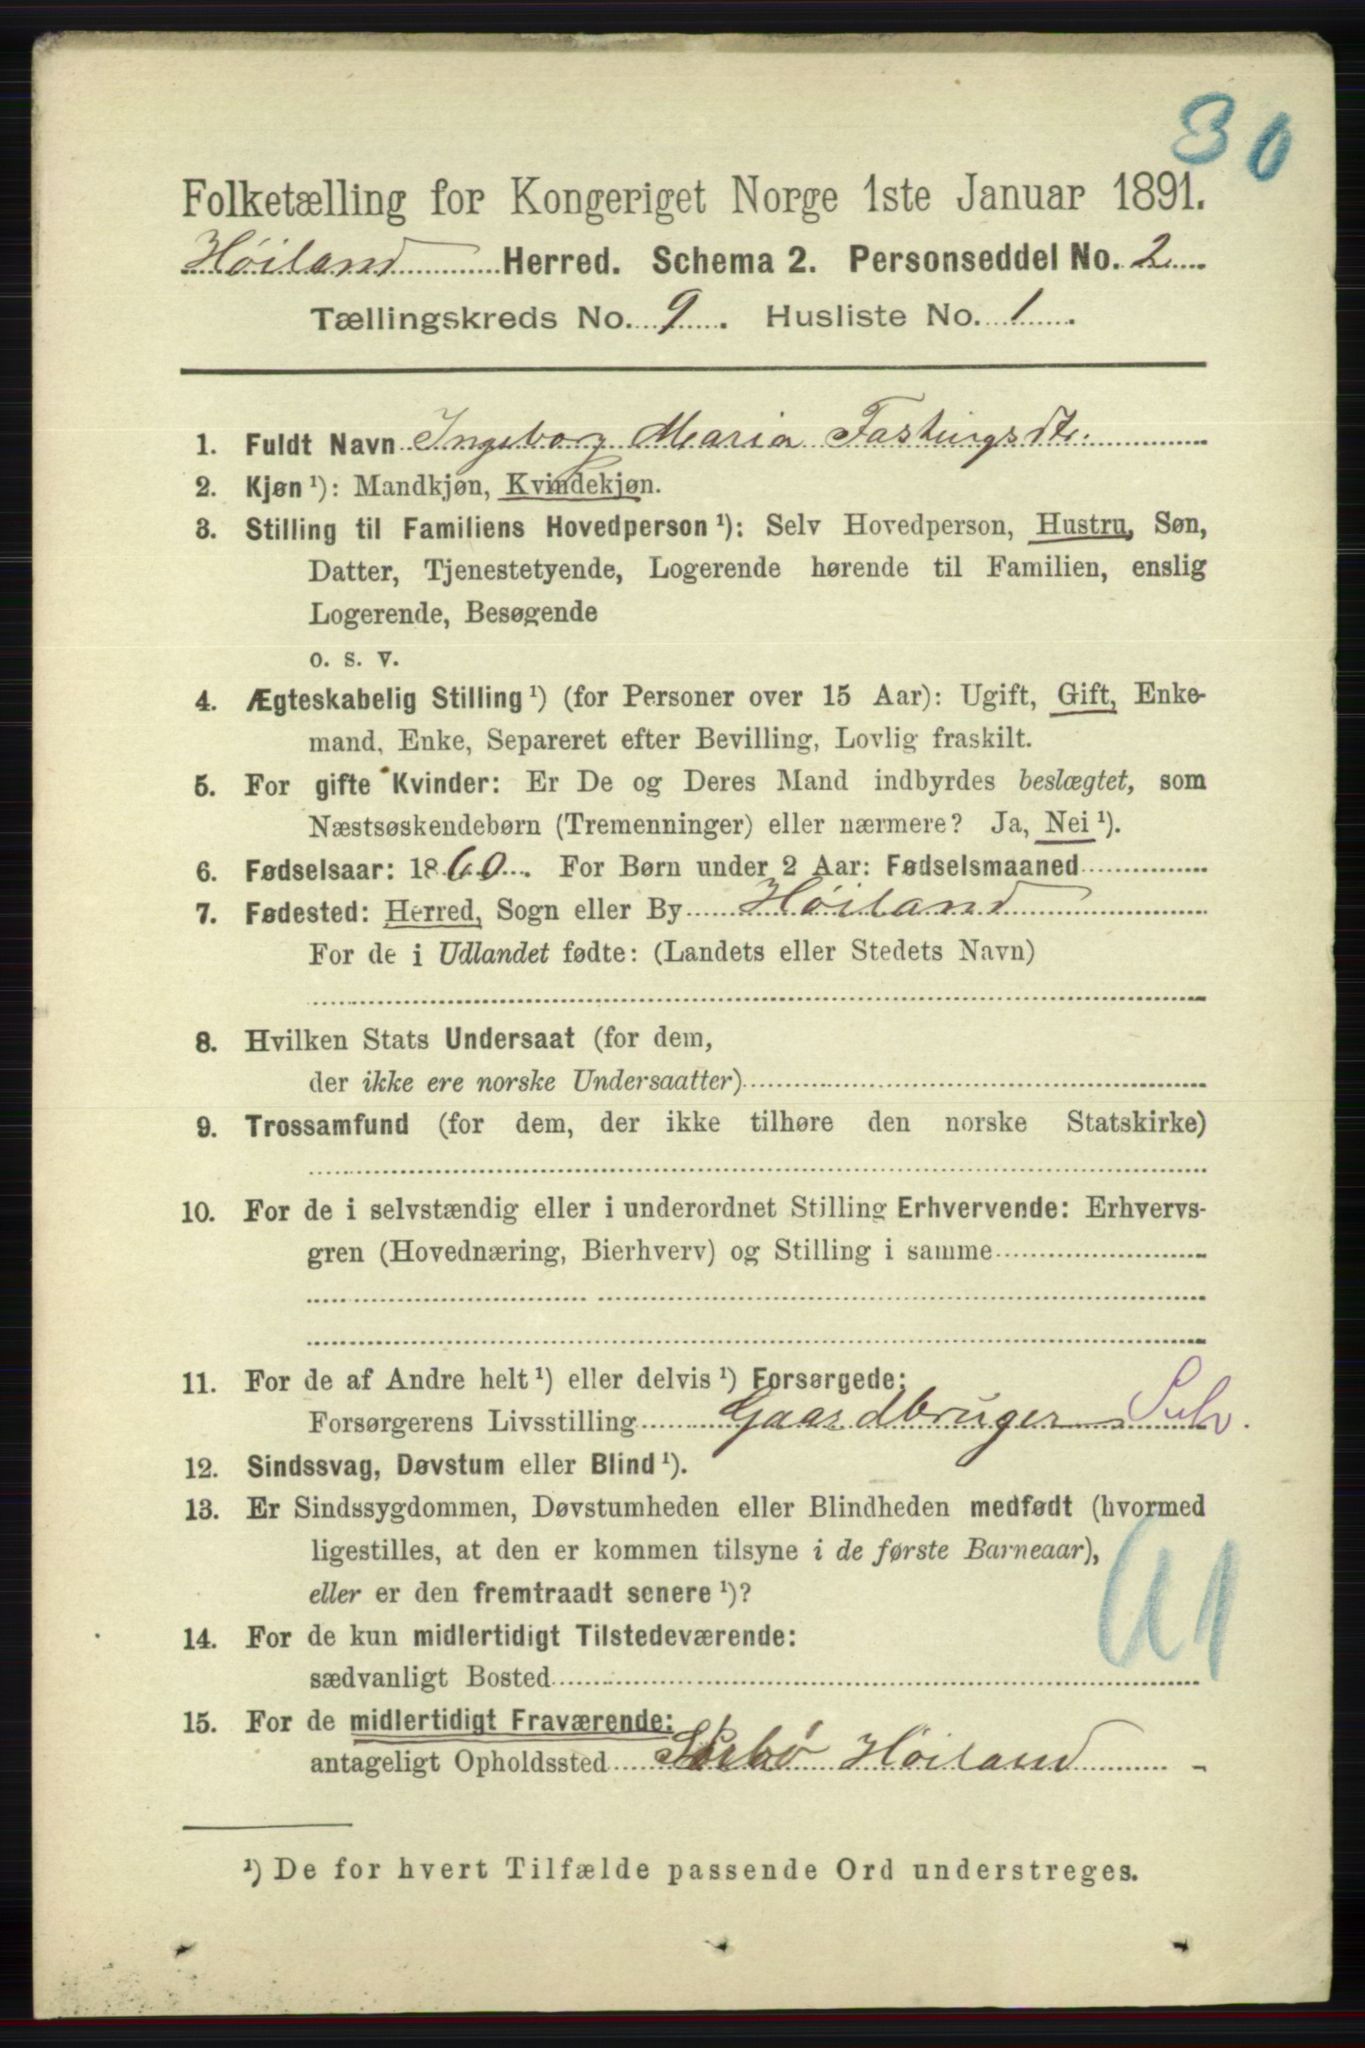 30
Folketælling for Kongeriget Norge 1ste Januar 1891.
Høiland Herred. Schema 2. Personseddel No. 2
Tællingskreds No. 9. Husliste No. 1
1. Fuldt Navn Ingeborg Maria Fastingsdtr.
2. Kjøn¹): Mandkjøn, Kvindekjøn.
3. Stilling til Familiens Hovedperson¹): Selv Hovedperson, Hustru, Søn,
Datter, Tjenestetyende, Logerende hørende til Familien, enslig
Logerende, Besøgende
o. s. v.
4. Ægteskabelig Stilling¹) (for Personer over 15 Aar): Ugift, Gift, Enke-
mand, Enke, Separeret efter Bevilling, Lovlig fraskilt.
5. For gifte Kvinder: Er De og Deres Mand indbyrdes beslægtet, som
Næstsøskendebørn (Tremenninger) eller nærmere? Ja, Nei¹).
6. Fødselsaar: 1860. For Børn under 2 Aar: Fødselsmaaned
7. Fødested: Herred, Sogn eller By Høiland
For de i Udlandet fødte: (Landets eller Stedets Navn)
8. Hvilken Stats Undersaat (for dem,
der ikke ere norske Undersaatter)
9. Trossamfund (for dem, der ikke tilhøre den norske Statskirke)
10. For de i selvstændig eller i underordnet Stilling Erhvervende: Erhvervs-
gren (Hovednæring, Bierhverv) og Stilling i samme
11. For de af Andre helt¹) eller delvis¹) Forsørgede:
Forsørgerens Livsstilling Gaardbruger Selv.
12. Sindssvag, Døvstum eller Blind¹).
13. Er Sindssygdommen, Døvstumheden eller Blindheden medfødt (hvormed
ligestilles, at den er kommen tilsyne i de første Barneaar),
eller er den fremtraadt senere¹)?
14. For de kun midlertidigt Tilstedeværende:
sædvanligt Bosted
15. For de midlertidigt Fraværende:
antageligt Opholdssted Høiland
¹) De for hvert Tilfælde passende Ord understreges.